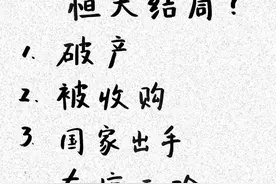 恒大结局?
1. 破产
2. 被收购
3. 国家出手